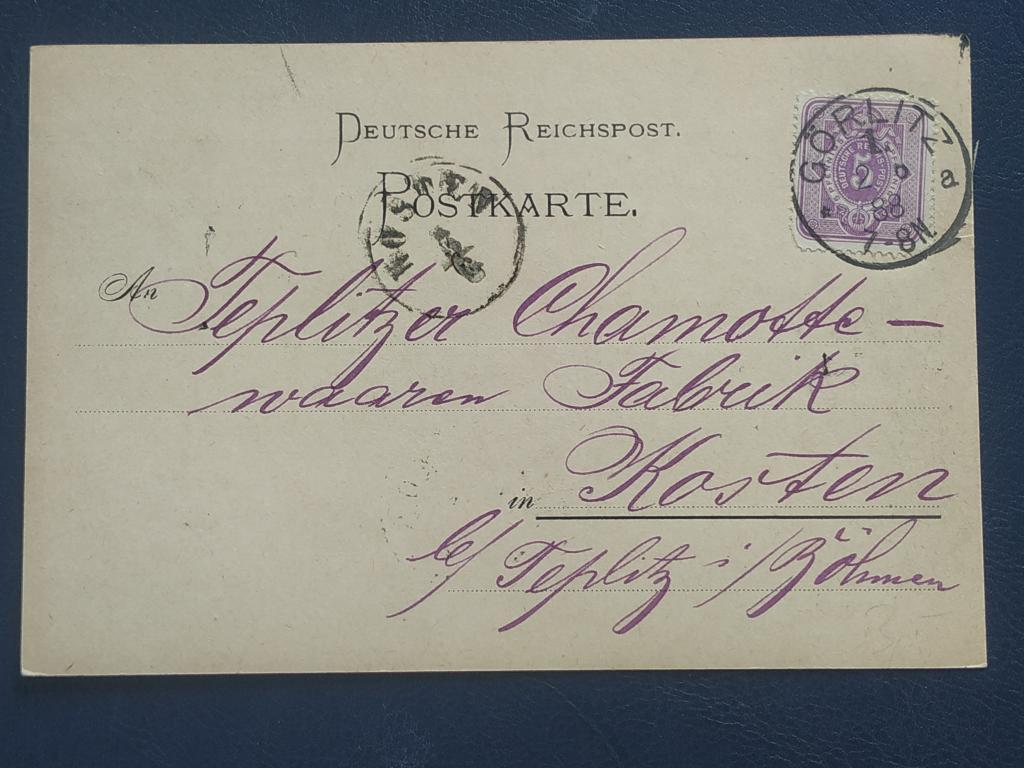 DEUTSCHE REICHSPOST.
POSTKARTE.
GÖRLITZ
a
2
88
7-8N.
DEUTSCHE REICHS-POST
5
An Teplitzer Chamotte-
waaren Fabrik
in Kosten
b/ Teplitz i/Böhmen